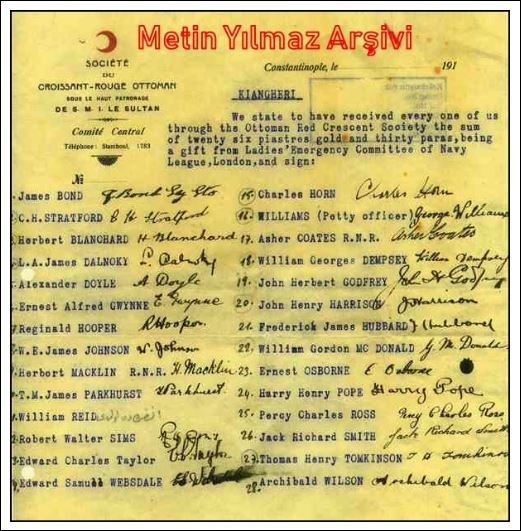 Metin Yılmaz Arşivi
SOCIÉTÉ
DU
CROISSANT-ROUGE OTTOMAN
SOUS LE HAUT PATRONAGE
DE S. M. I. LE SULTAN
Comité Central
Téléphone: Stamboul, 1783
Constantinople, le 191
№
KIANGHERI
We state to have received every one of us
through the Ottoman Red Crescent Society the sum
of twenty six piastres gold and thirty paras, being
a gift from Ladies'Emergency Committee of Navy
League, London, and sign:
James BOND
C.H. STRATFORD C H Stratford
Herbert BLANCHARD H Blanchard
L.A. James DALNOKY
Alexander DOYLE A Doyle
Ernest Alfred GWYNNE E. Gwynne
Reginald HOOPER R Hooper.
W.E. James JOHNSON W. Johnson
Herbert MACKLIN R.N.R. H Macklin
T.M. James PARKHURST Parkhurst.
William REID
Robert Walter SIMS
Edward Charles Taylor
Edward Samull WEBSDALE
15. Charles HORN Charles Horn
16. WILLIAMS (Petty officer) George Williams
17. Asher COATES R.N.R. Asher Coates
18. William Georges DEMPSEY William Dempsey
19. John Herbert GODFREY John H Godfrey
20. John Henry HARRISON J Harrison
21. Frederick James HUBBARD J Hubbard
22. William Gordon MC DONALD G. M. Donald
23. Ernest OSBORNE E Osborne
24. Harry Henry POPE Harry Pope
25. Percy Charles ROSS Percy Charles Ross
26. Jack Richard SMITH Jack Richard Smith
27. Thomas Henry TOMKINSON T H Tomkinson
28. Archibald WILSON Archibald Wilson